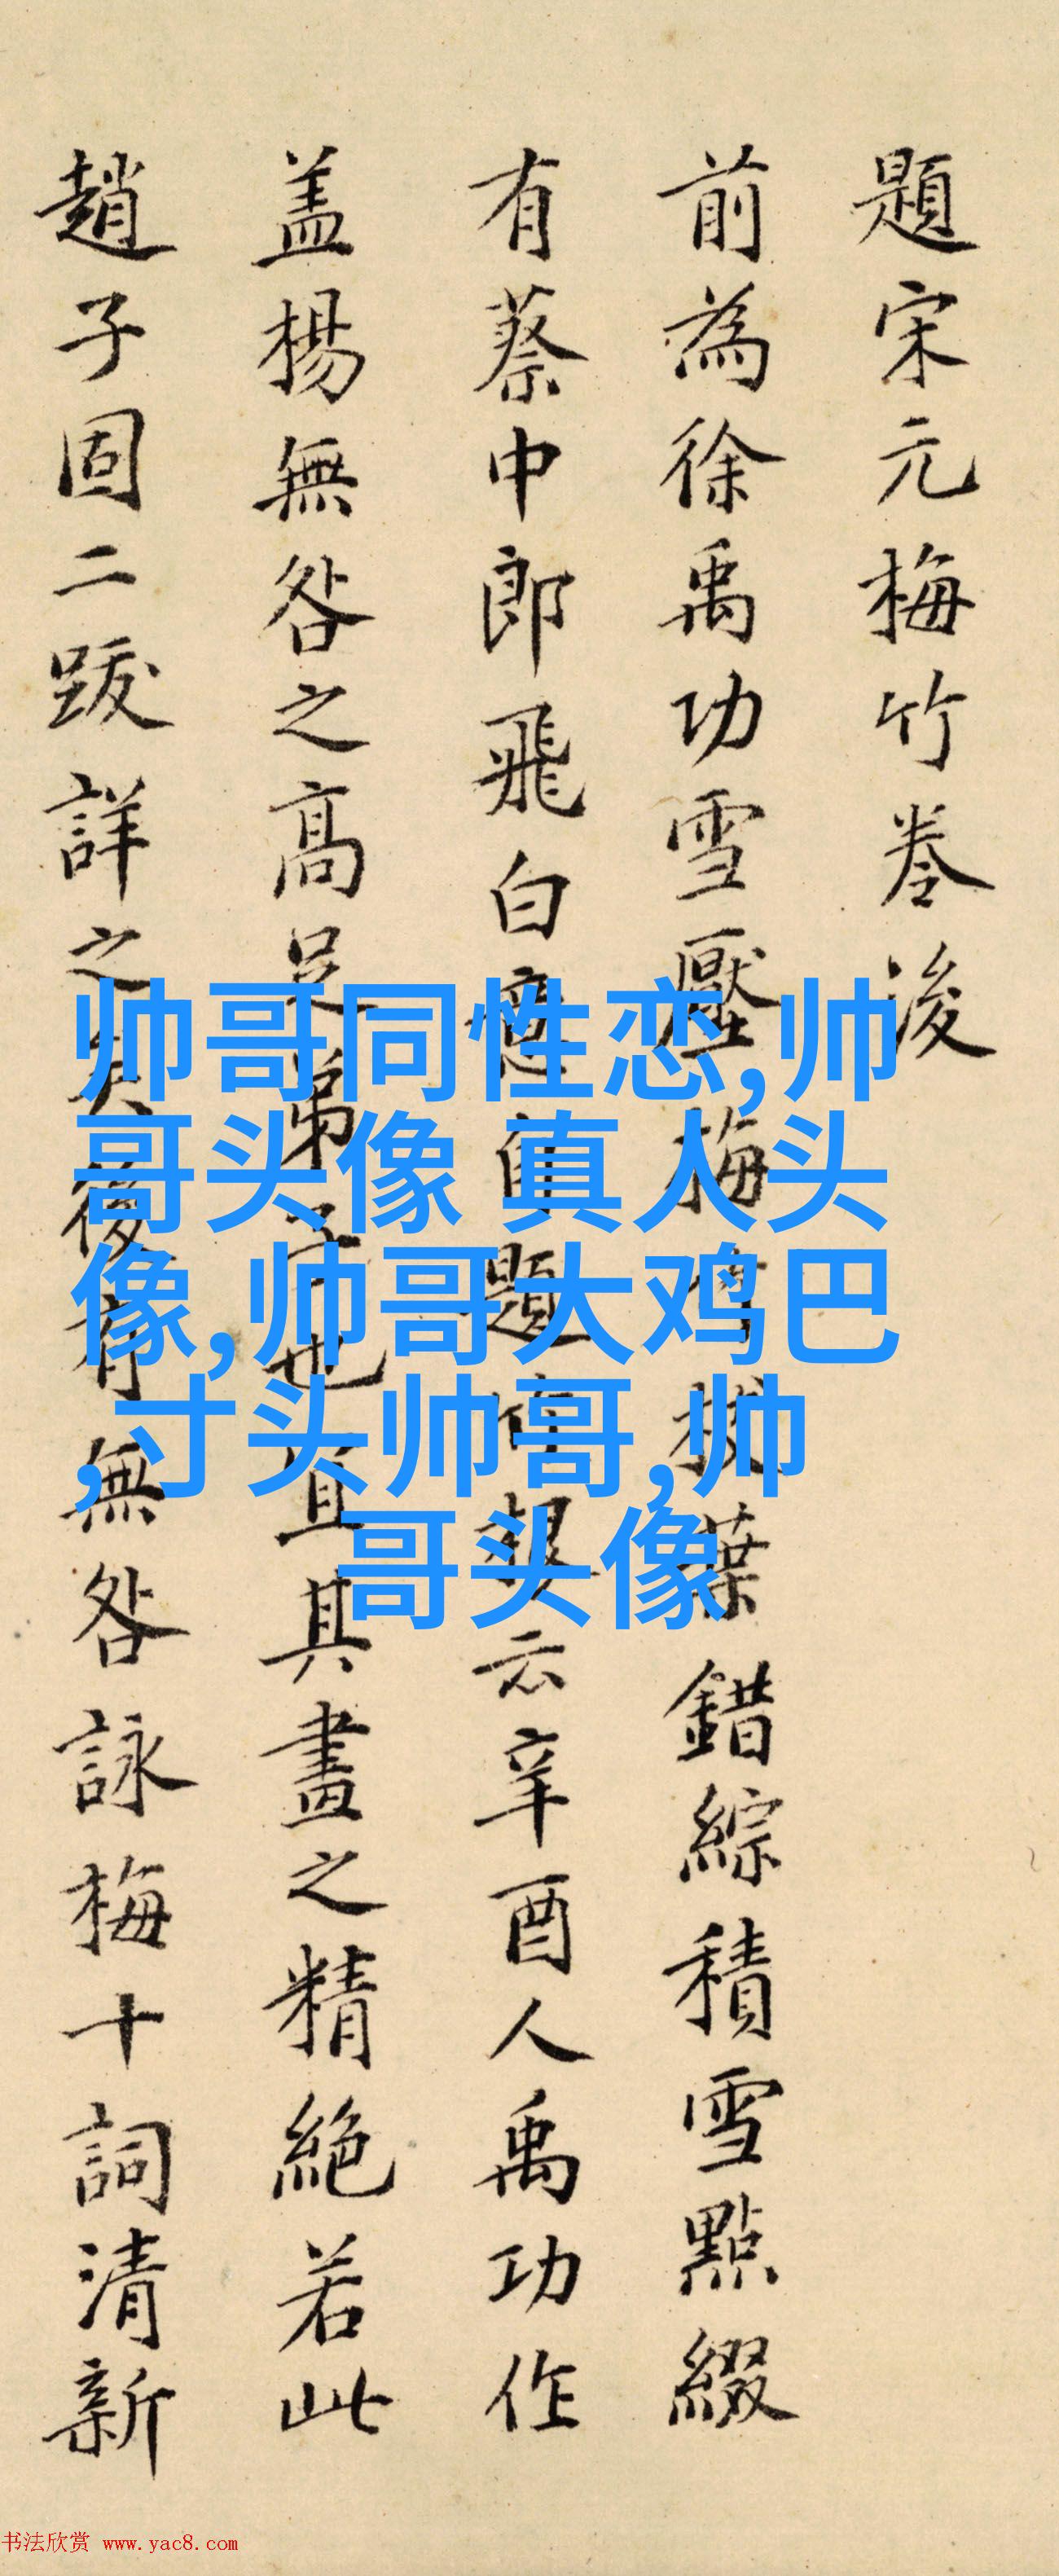 題宋元梅竹卷後
前為徐禹功雪壓梅竹枝葉錯綜積雪點綴
有蔡中郎飛白意 題 云辛酉人禹功作
盖楊無咎之高足弟子也宜其畫之精絕若此
趙子固二跋詳之矣後有無咎詠梅十詞清新
帅哥同性恋,帅
哥头像 真人头
像,帅哥大鸡巴
,寸头帅哥,帅
哥头像
书法欣赏 www.yac8.com